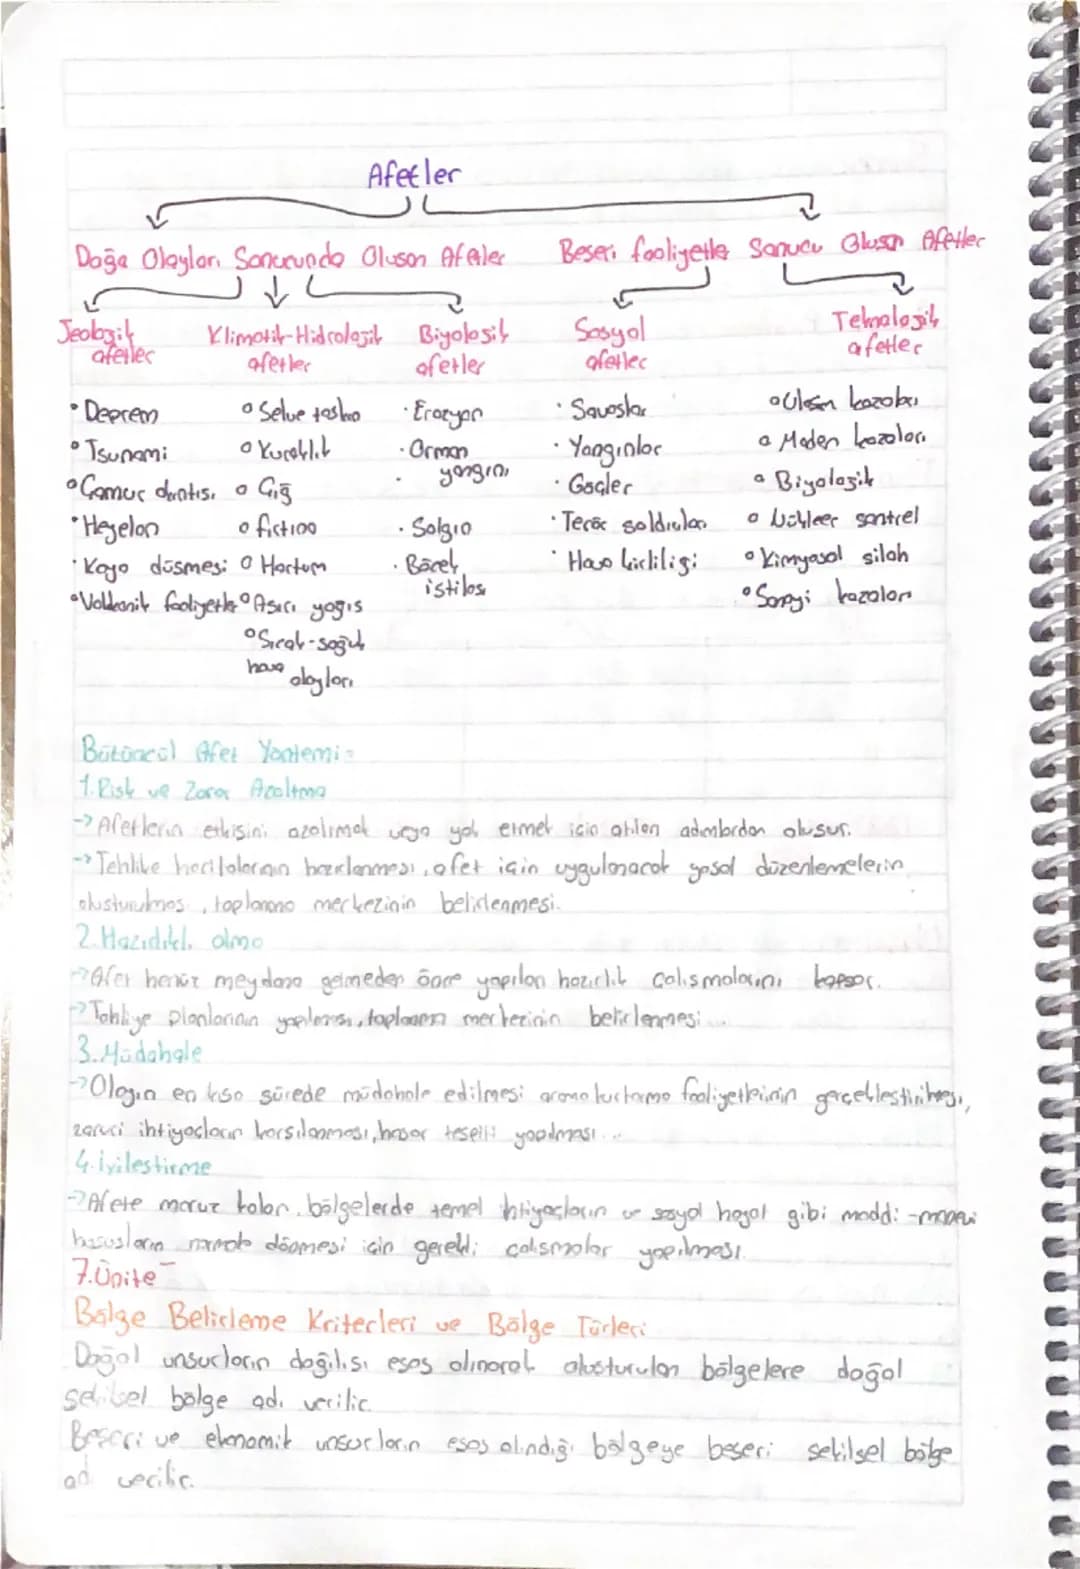 Afetler
Doğa Olayları Sonucunda Oluşan Afetler
Beşeri faaliyetler Sonucu Oluşan Afetler
Jeolojik afetler
Klimatik-Hidrolojik afetler
Biyolojik afetler
Sosyal afetler
Teknolojik afetler
• Deprem
• Tsunami
• Çamur akıntısı
• Heyelan
• Kaya düşmesi
• Volkanik faaliyetler
• Sel ve taşkın
• Kuraklık
• Çığ
• fırtına
• Hortum
• Aşırı yağış
• Sıcak-soğuk
hava olayları
• Erozyon
• Orman
yangını
• Salgın
• Böcek
istilası
• Savaşlar
• Yangınlar
• Göçler
• Terör saldırıları
• Hava kirliliği
• Ulaşım kazaları
• Maden kazaları
• Biyolojik
• Nükleer santrel
• Kimyasal silah
• Sanayi kazaları
Bütüncül Afet Yöntemi:
1. Risk ve Zarar Azaltma
→ Afetlerin etkisini azalımak veya yok etmek için atılan adımlardan oluşur.
→ Tehlike haritalarının hazırlanması, afet için uygulanacak yasal düzenlemelerin
oluşturulması, toplanma merkezinin belirlenmesi.
2. Hazırlıklı olma
→ Afet henüz meydana gelmeden önce yapılan hazırlık çalışmalarını kapsar.
→ Tahliye planlarının yapılması, toplanma merkezinin belirlenmesi...
3. Müdahale
→ Olayın en kısa sürede müdahale edilmesi arama kurtarma faaliyetlerinin gerçekleştirilmesi,
zaruri ihtiyaçların karşılanması, hasar tespiti yapılması...
4. İyileştirme
→ Afete maruz kalan bölgelerde temel ihtiyaçların ve sosyal hayat gibi maddi-manevi
hususların normale dönmesi için gerekli çalışmalar yapılması.
7. Ünite
Bölge Belirleme Kriterleri ve Bölge Türleri
Doğal unsurların dağılışı esas alınarak oluşturulan bölgelere doğal
şekilsel bölge adı verilir.
Beşeri ve ekonomik unsurların esas alındığı bölgeye beşeri şekilsel bölge
adı verilir.